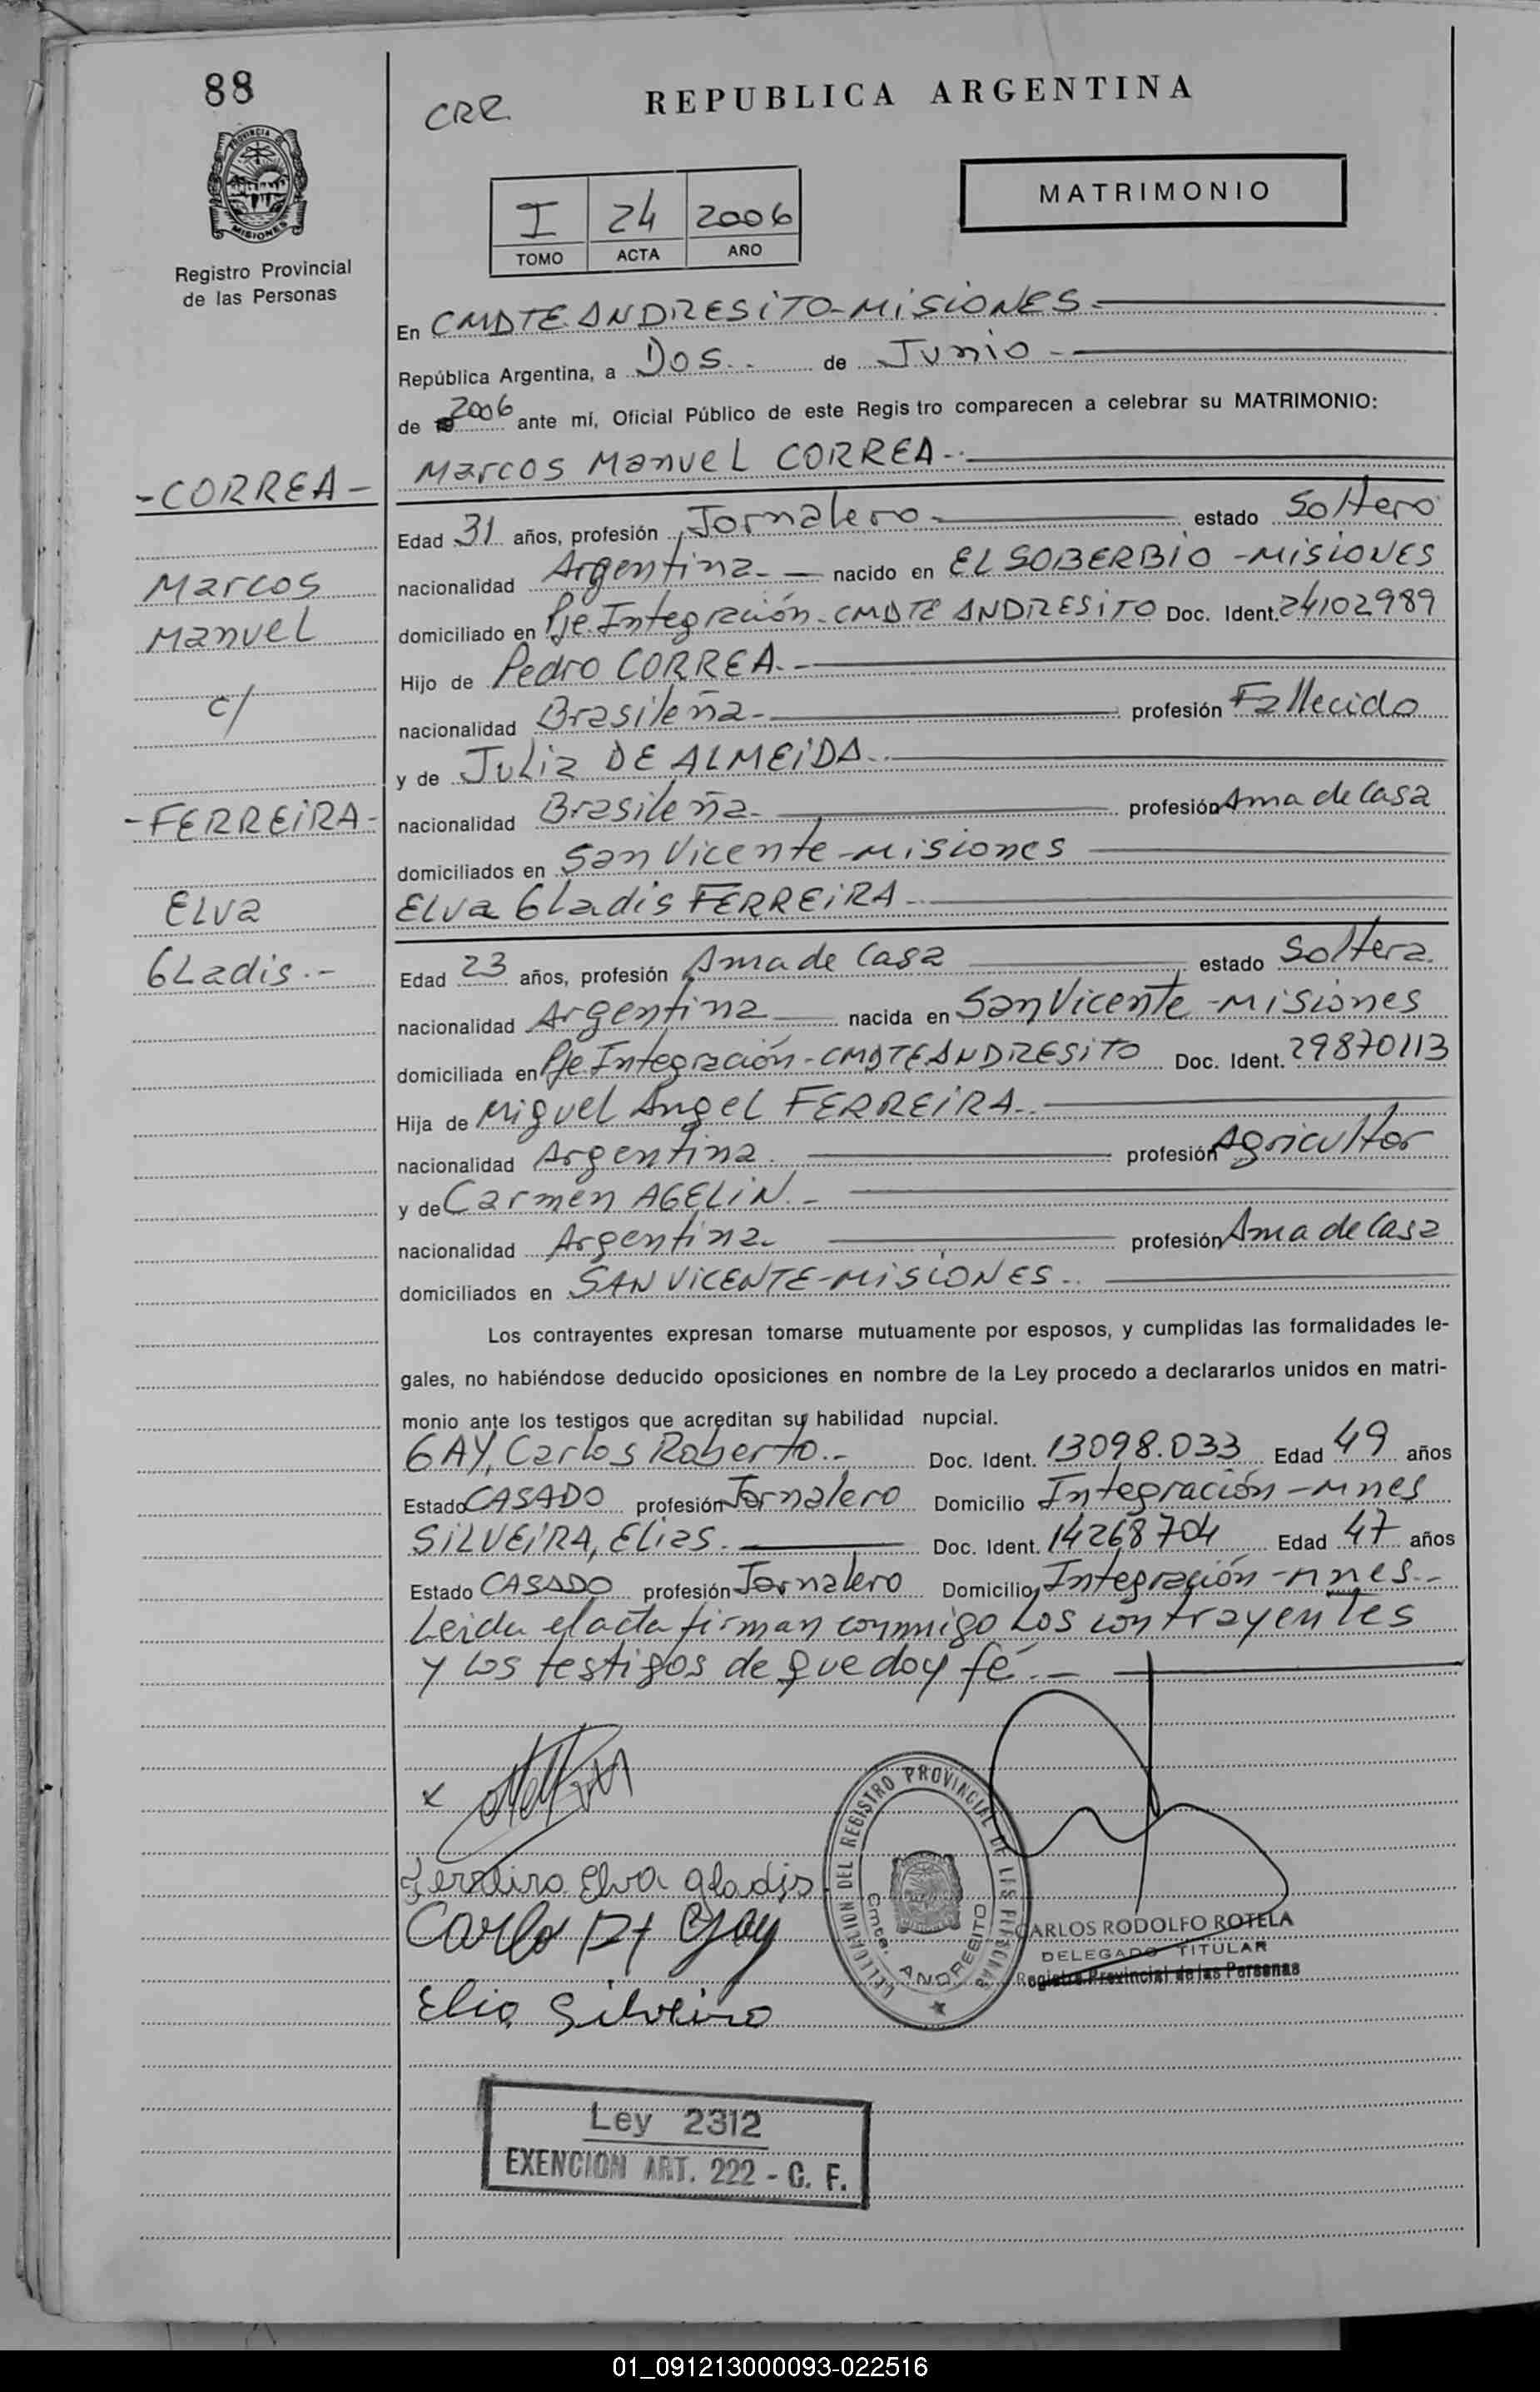 88
CRR
REPUBLICA ARGENTINA
PROVINCIA DE
MISIONES
Registro Provincial
de las Personas
I 24 2006
TOMO ACTA AÑO
MATRIMONIO
En CMDTE ANDRESITO-MISIONES.-
República Argentina, a Dos.. de Junio.-
de 2006 ante mí, Oficial Público de este Regis tro comparecen a celebrar su MATRIMONIO:
Marcos Manuel CORREA.-
-CORREA-
Marcos
Manuel
c/
-FERREIRA-
Elva
Gladis.-
Edad 31 años, profesión Jornalero- estado Soltero
nacionalidad Argentina.- nacido en EL SOBERBIO -MISIONES
domiciliado en Pje. Integración-CMDTE ANDRESITO Doc. Ident. 24102989
Hijo de Pedro CORREA.-
nacionalidad Brasileña- profesión Fallecido
y de Julia DE ALMEIDA..
nacionalidad Brasileña- profesión Ama de Casa
domiciliados en San Vicente-Misiones
Elva Gladis FERREIRA.-
Edad 23 años, profesión Ama de Casa estado Soltera.
nacionalidad Argentina nacida en San Vicente-Misiones
domiciliada en Pje Integración-CMDTE ANDRESITO Doc. Ident. 29870113
Hija de Miguel Ángel FERREIRA.-
nacionalidad Argentina. profesión Agricultor
y de Carmen AGELIN.-
nacionalidad Argentina- profesión Ama de Casa
domiciliados en SAN VICENTE-MISIONES..
Los contrayentes expresan tomarse mutuamente por esposos, y cumplidas las formalidades le-
gales, no habiéndose deducido oposiciones en nombre de la Ley procedo a declararlos unidos en matri-
monio ante los testigos que acreditan su habilidad nupcial.
GAY, Carlos Roberto.- Doc. Ident. 13098.033 Edad 49 años
Estado CASADO profesión Jornalero Domicilio Integración-Mnes
SILVEIRA, Elias. Doc. Ident. 14268704 Edad 47 años
Estado CASADO profesión Jornalero Domicilio Integración-Mnes.-
Leida el acta firman conmigo los contrayentes
y los testigos de que doy fé.-
x
Ferreira Elva gladis
Carlo Rt Gay
Elia Silveira
DELEGACION DEL REGISTRO PROVINCIAL DE LAS PERSONAS
Cmte. ANDRESITO
CARLOS RODOLFO ROTELA
DELEGADO TITULAR
Registro Provincial de las Personas
Ley 2312
EXENCION ART. 222 - C. F.
01_091213000093-022516